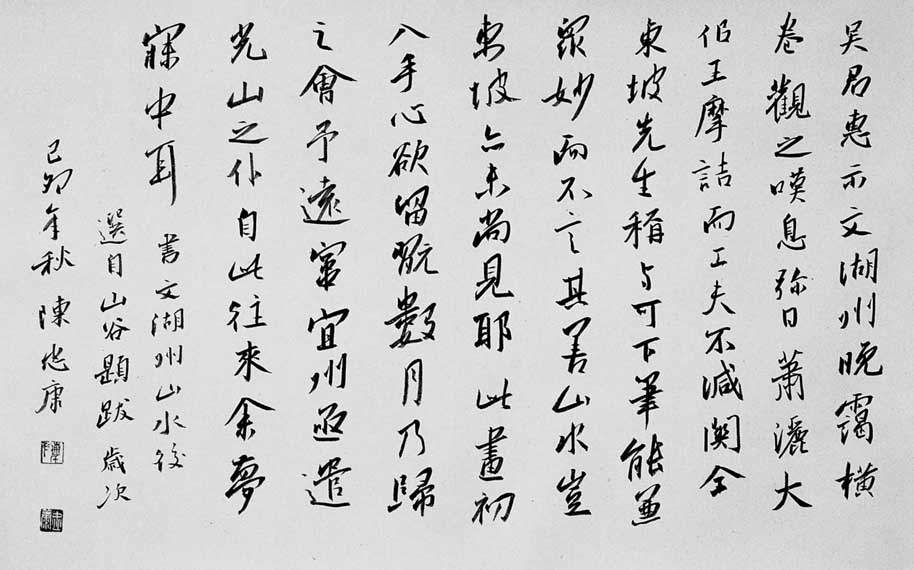 吴君惠示文湖州晚靄橫
卷觀之嘆息弥日蕭灑大
佀王摩詰而工夫不減関仝
東坡先生稱与可下筆能兼
衆妙而不言其善山水豈
東坡亦未尚見耶此畫初
入手心欲留翫數月乃歸
之會予遠竄宜州亟遣
光山之仆自此往來余夢
寐中耳 書文湖州山水後
選自山谷題跋 歲次
己卯年秋 陳忠康